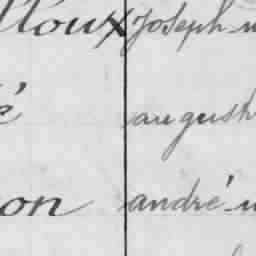 lloux Joseph
é august
on andré